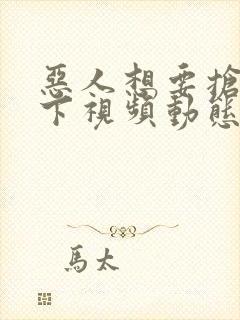 惡人想要搶
下視頻動態
馬太